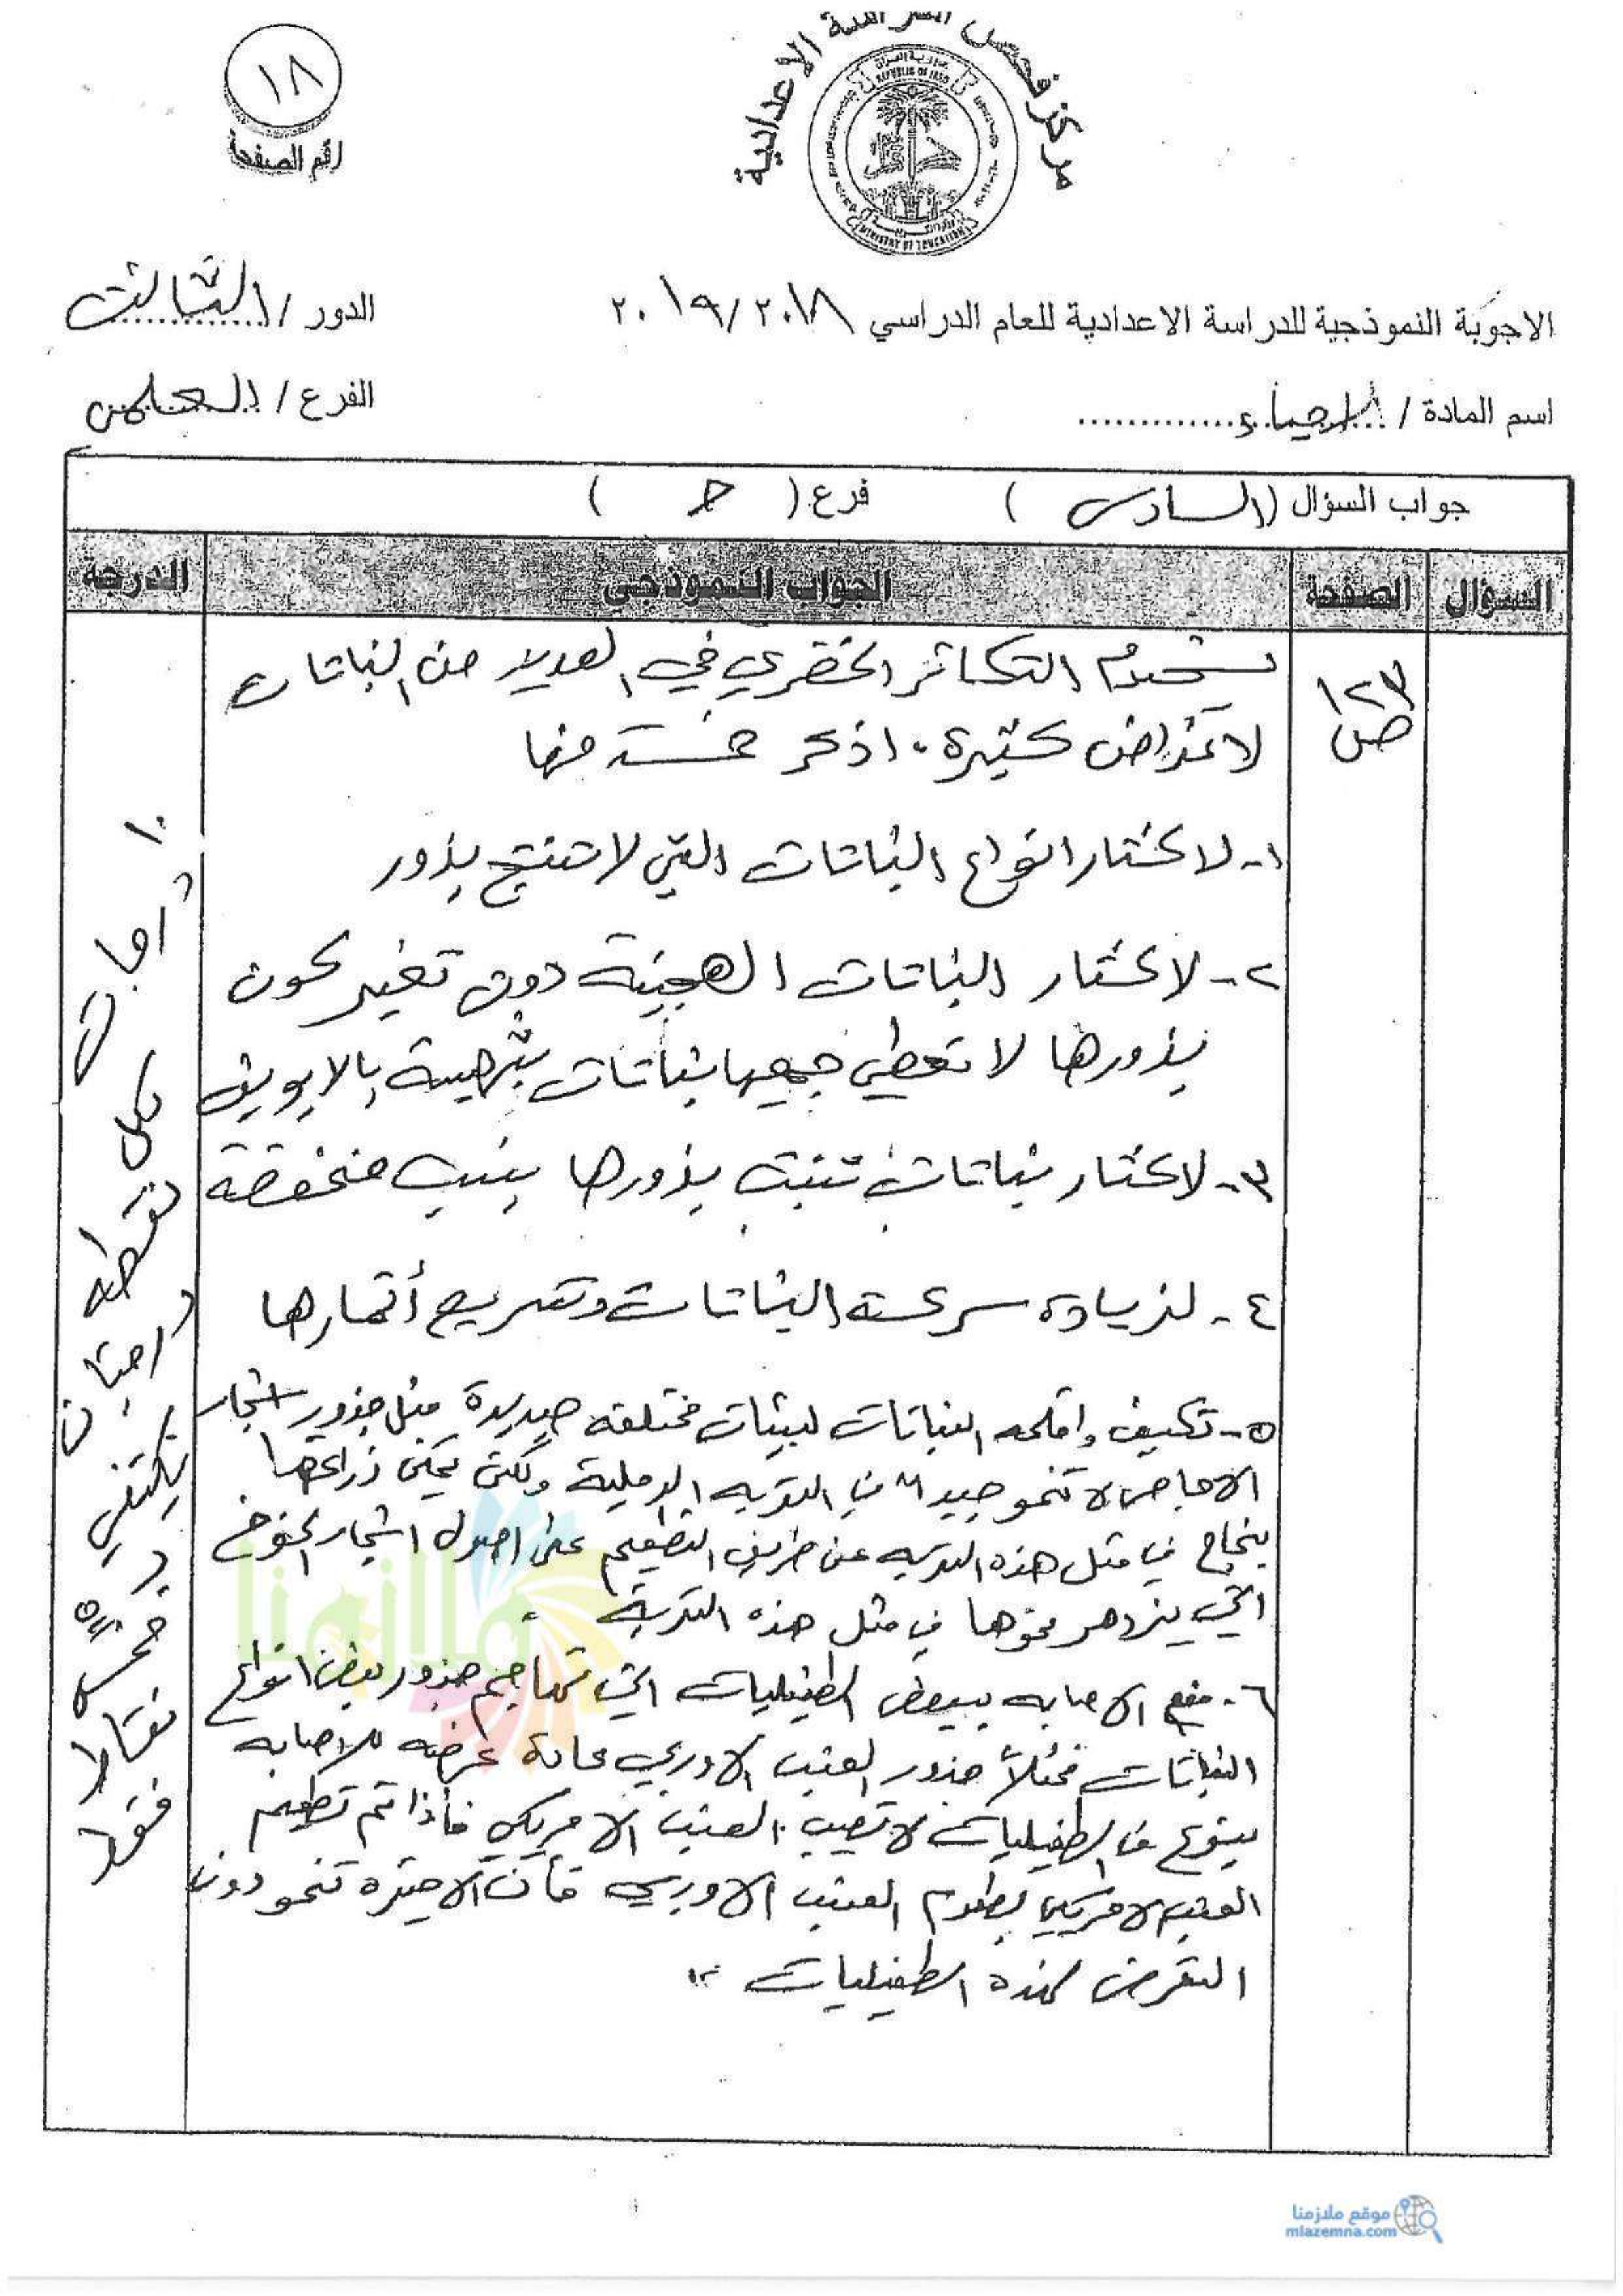 ١٨
رقم الصفحة
مركز فحص الدراسة الاعدادية
جمهورية العراق
REPUBLIC OF IRAQ
MINISTRY OF EDUCATION
الاجوبة النموذجية للدراسة الاعدادية للعام الدراسي ٢٠١٩/٢٠١٨
الدور / الثالث
اسم المادة / الاحياء
الفرع / العلمي
جواب السؤال (السادس) فرع ( )
السؤال الصفحة الجواب النموذجي الدرجة
ص ١٢٣
يستخدم التكاثر الخضري في العديد من النباتات
لاغراض كثيرة. اذكر خمسة منها
١- لاكثار انواع النباتات التي لا تنتج بذور
٢- لاكثار النباتات الهجينة دون تغير كون
بذورها لا تعطي جميعها نباتات شبيهة بالابوين
٣- لاكثار نباتات تنبت بذورها بنسب منخفضة
٤- لزيادة سرعة النباتات وتسريع أثمارها
٥- تكييف واقلمه النباتات لبيئات مختلفه جديدة مثل جذور اشجار
الاجاص لا تنمو جيداً في التربه الرملية ولكن يمكن زراعتها
بنجاح في مثل هذه التربه عن طريق التطعيم على اصول اشجار الخوخ
التي يزدهر نموها في مثل هذه التربة .
٦- منع الاصابه ببعض الطفيليات التي تهاجم جذور بعض انواع
النباتات فمثلاً جذور العنب الاوربي عادة عرضه للاصابه
بنوع من الطفيليات لا تصيب العنب الامريكي فأذا تم تطعيم
العنب الامريكي بطعوم العنب الاوربي فأن الاخيرة تنمو دون
التعرض لهذه الطفيليات "
١٠ درجات
لكل نقطه درجتان
يكتفي بـ خمسة نقاط فقط
ملازمنا
موقع ملازمنا
mlazemna.com